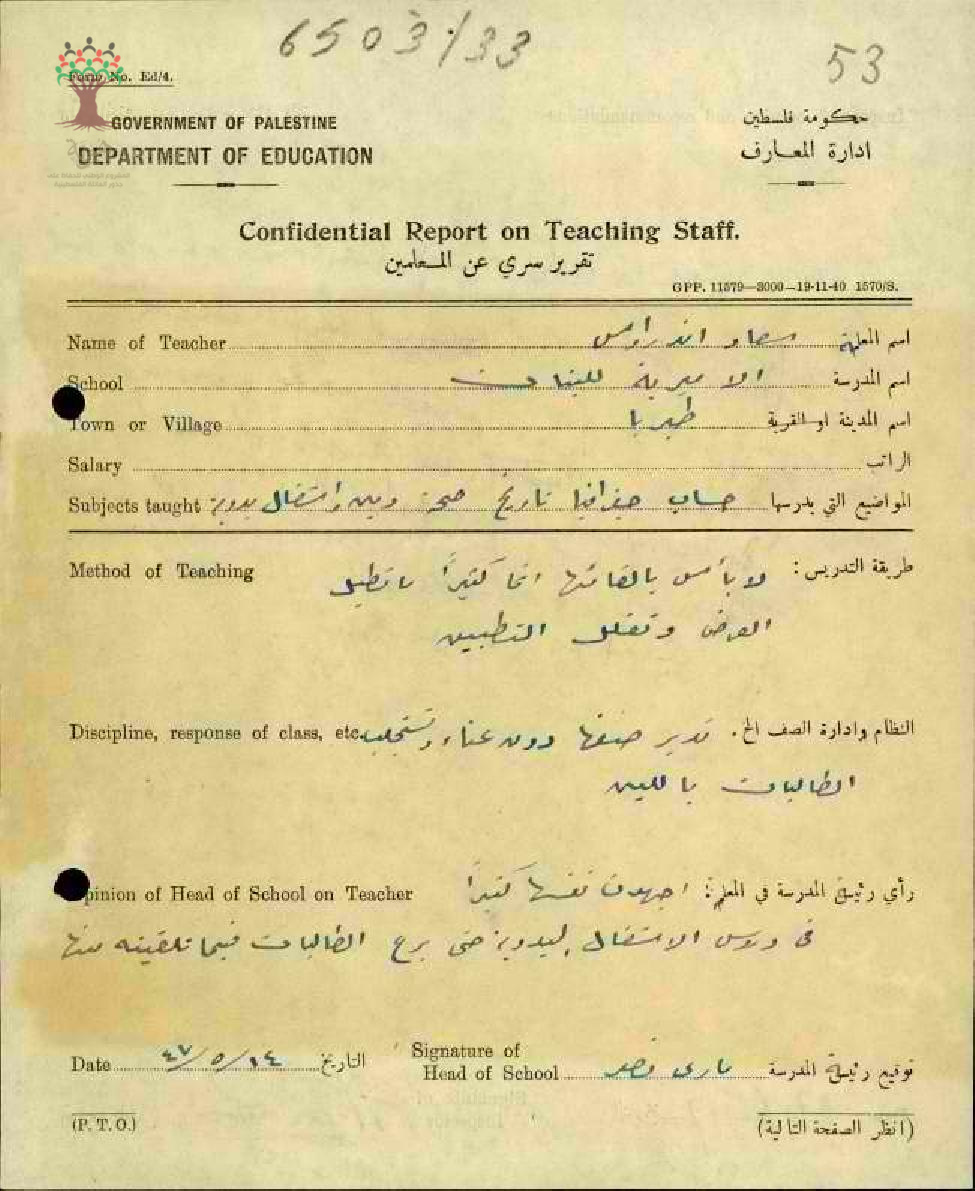 6503/33
53
Form No. Ed/4.
GOVERNMENT OF PALESTINE
حكومة فلسطين
DEPARTMENT OF EDUCATION
ادارة المعارف
Confidential Report on Teaching Staff.
تقرير سري عن المعلمين
GPP. 11579—3000—19-11-40 1570/S.
Name of Teacher سعاد اندراوس اسم المعلمة
School الاميرية للبنات اسم المدرسة
Town or Village طبريا اسم المدينة او القرية
Salary الراتب
Subjects taught حساب جغرافيا تاريخ صحة ودين واشغال يدوية المواضيع التي يدرسها
Method of Teaching طريقة التدريس: لا بأس بالقائها انما كثيراً ما تطيل
العرض وتقلل التطبيق
Discipline, response of class, etc. النظام وادارة الصف الخ. تدير صفها دون عناء وتستجلب
الطالبات باللين
Opinion of Head of School on Teacher رأي رئيسة المدرسة في المعلمة: اجهدت نفسها كثيراً
في دروس الاشغال اليدوية حتى برع الطالبات فيما تلقينه منها
Date ١٤/٥/٤٢ التاريخ
Signature of
Head of School ماري توقيع رئيسة المدرسة
(P. T. O.)
(انظر الصفحة التالية)